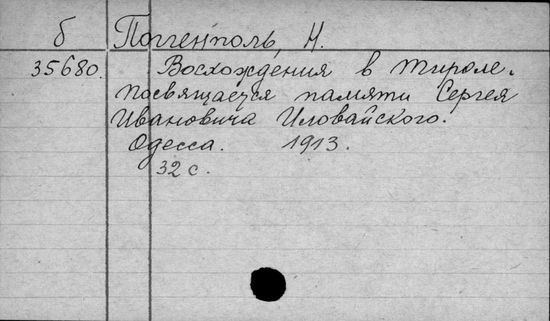 б Поггенполь, Н.
35680. Восхождения в Тироле.
посвящается памяти Сергея
Ивановича Иловайского.
Одесса. 1913.
32 с.